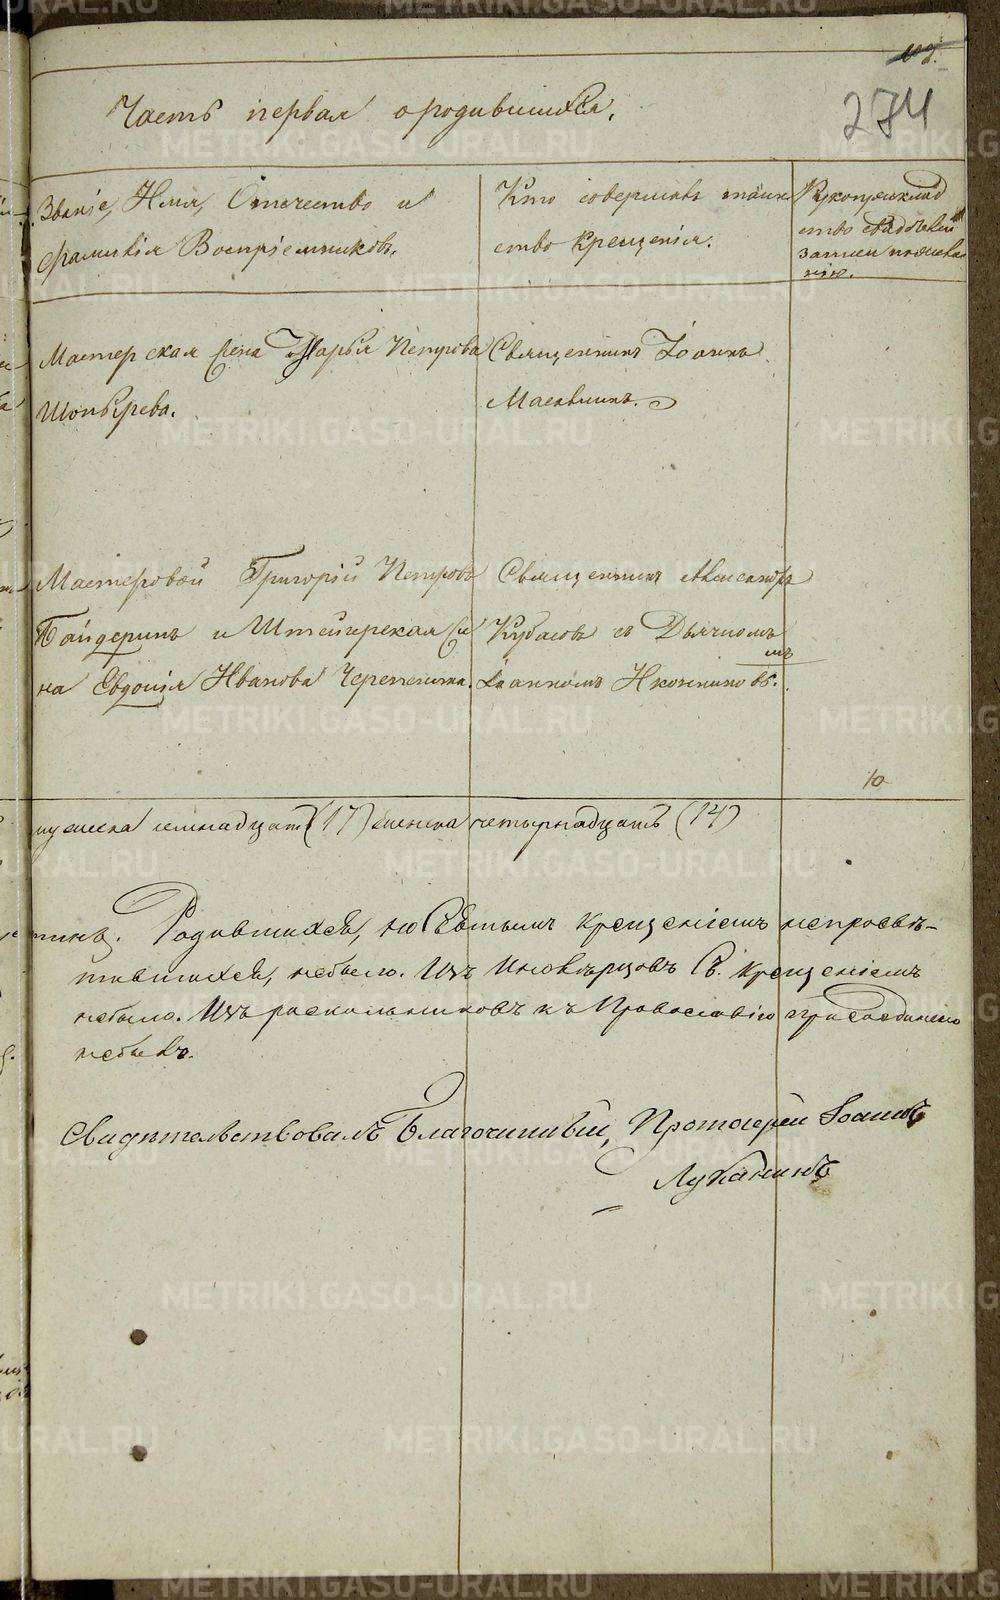 102.
274
Часть первая о родившихся.
Званіе, Имя, Отечество и
фамилія Воспріемниковъ.
Кто совершалъ таин
ство крещенія.
Рукоприклад
ство свидѣтелей
записи по желан
нію.
Мастерская жена Марья Петрова
Шопырева.
Священникъ Іоаннъ
Масаллинъ.
Мастеровой Григорій Петровъ
Байдеринъ и Штейгерская Же
на Евдокія Иванова Черепенина.
Священникъ Александръ
Кубасовъ съ Дьячкомъ
мъ
Іоанномъ Икониковъ.
10
мужеска семнадцать (17) женска четырнадцать (14)
Родившихся, но Святымъ крещеніемъ непросвѣ-
тившихся, небыло. Изъ Иновѣрцовъ Св. крещеніемъ
небыло. Изъ раскольниковъ къ Православію присоединено
небыло.
Свидѣтельствовалъ Благочинный, Протоіерей Іоаннъ
Луканинъ
METRIKI.GASO-URAL.RU